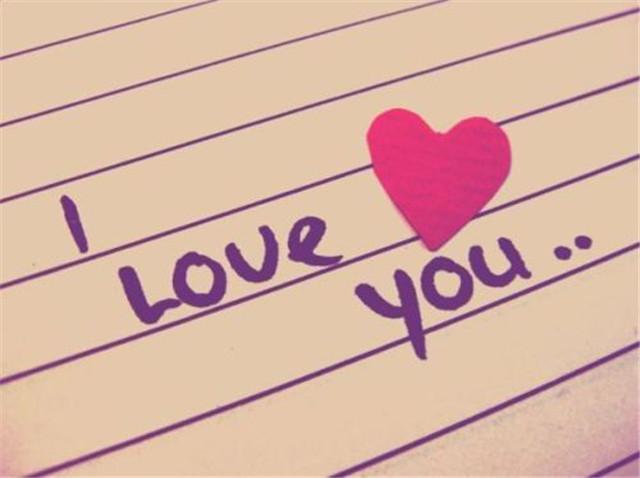 I
LOVe
you..